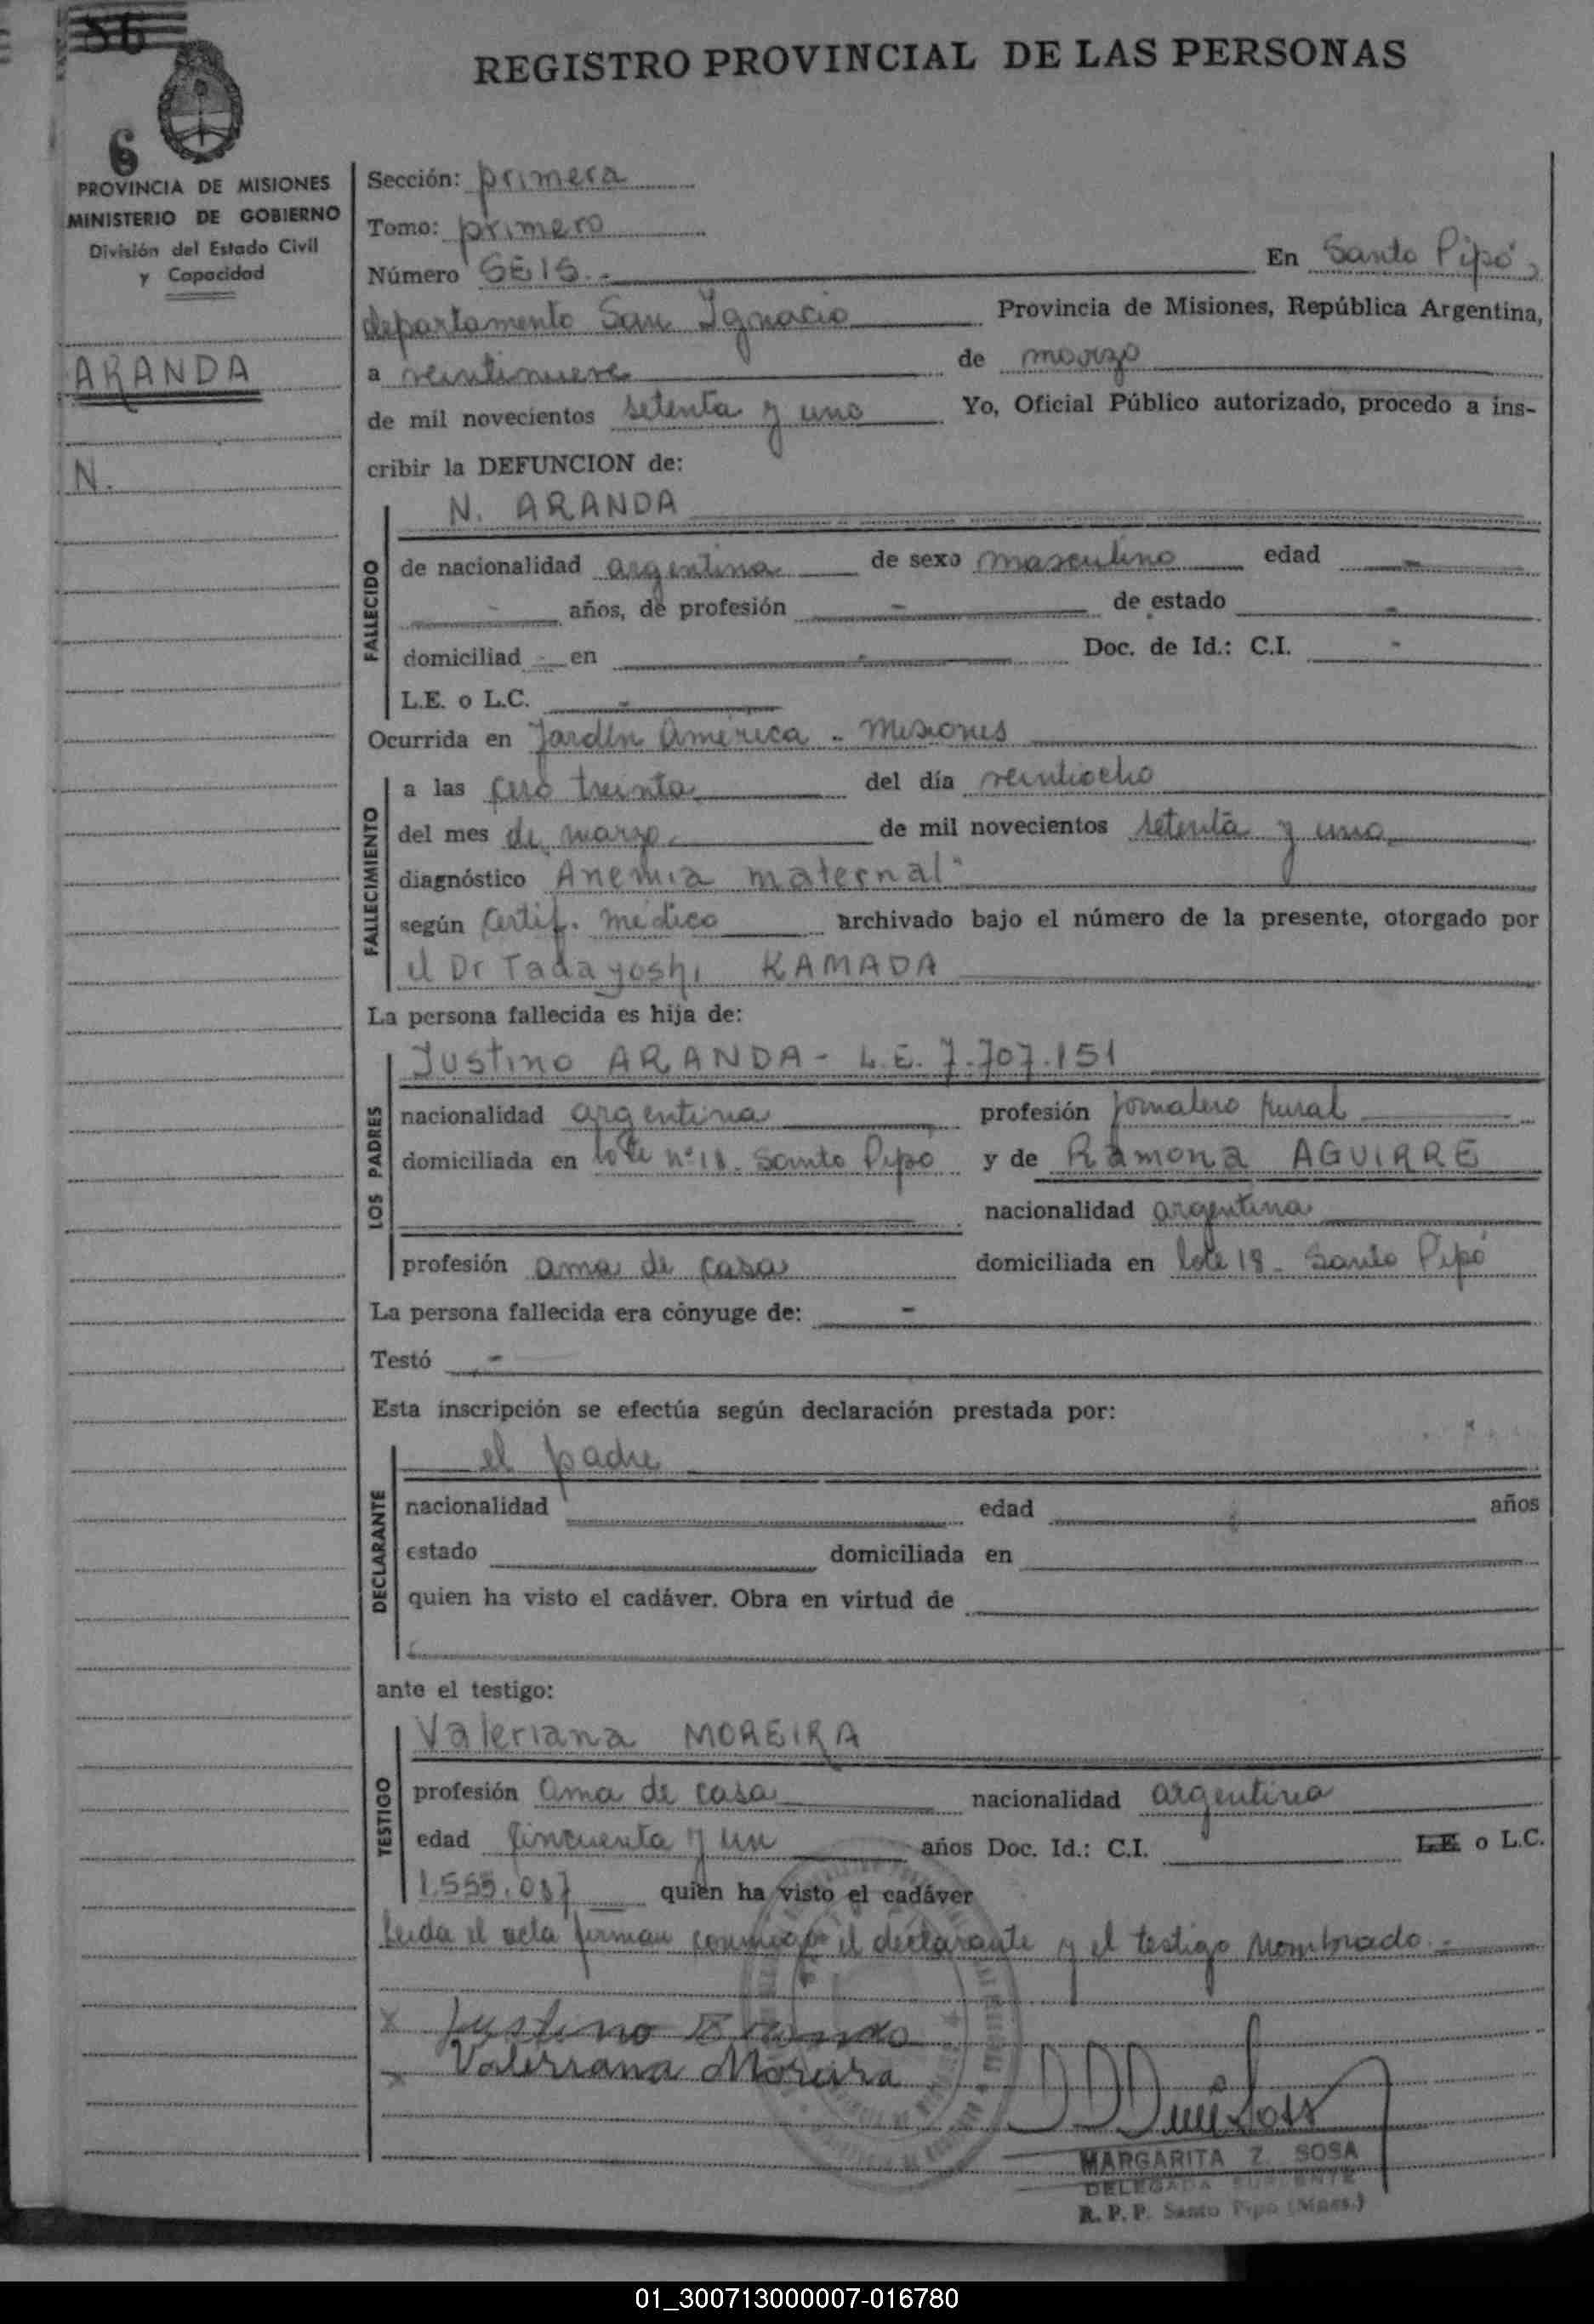 86
REGISTRO PROVINCIAL DE LAS PERSONAS
6
PROVINCIA DE MISIONES
MINISTERIO DE GOBIERNO
División del Estado Civil
y Capacidad
ARANDA
N.
Sección: primera
Tomo: primero
Número SEIS.- En Santo Pipó,
departamento San Ignacio Provincia de Misiones, República Argentina,
a veintinueve de marzo
de mil novecientos setenta y uno Yo, Oficial Público autorizado, procedo a ins-
cribir la DEFUNCION de:
N. ARANDA
FALLECIDO
de nacionalidad argentina de sexo masculino edad -
- años, de profesión - de estado -
domiciliad - en - Doc. de Id.: C.I. -
L.E. o L.C. -
Ocurrida en Jardín América - Misiones
FALLECIMIENTO
a las cero treinta del día veintiocho
del mes de marzo de mil novecientos setenta y uno
diagnóstico "Anemia maternal"
según Certif. médico archivado bajo el número de la presente, otorgado por
el Dr Tadayoshi KAMADA
La persona fallecida es hija de:
LOS PADRES
Justino ARANDA - L.E. 7.707.151
nacionalidad argentina profesión jornalero rural
domiciliada en lote nº 18. Santo Pipó y de Ramona AGUIRRE
nacionalidad argentina
profesión ama de casa domiciliada en lote 18 - Santo Pipó
La persona fallecida era cónyuge de: -
Testó -
Esta inscripción se efectúa según declaración prestada por:
DECLARANTE
el padre
nacionalidad edad años
estado domiciliada en
quien ha visto el cadáver. Obra en virtud de
ante el testigo:
TESTIGO
Valeriana MOREIRA
profesión ama de casa nacionalidad argentina
edad cincuenta y un años Doc. Id.: C.I. L.E. o L.C.
1.555.087 quien ha visto el cadáver
Leida el acta firman conmigo el declarante y el testigo nombrado.-
x Justino Aranda
x Valeriana Moreira
MARGARITA Z. SOSA
DELEGADA SUPLENTE
R.P.P. Santo Pipó (Mnes.)
01_300713000007-016780